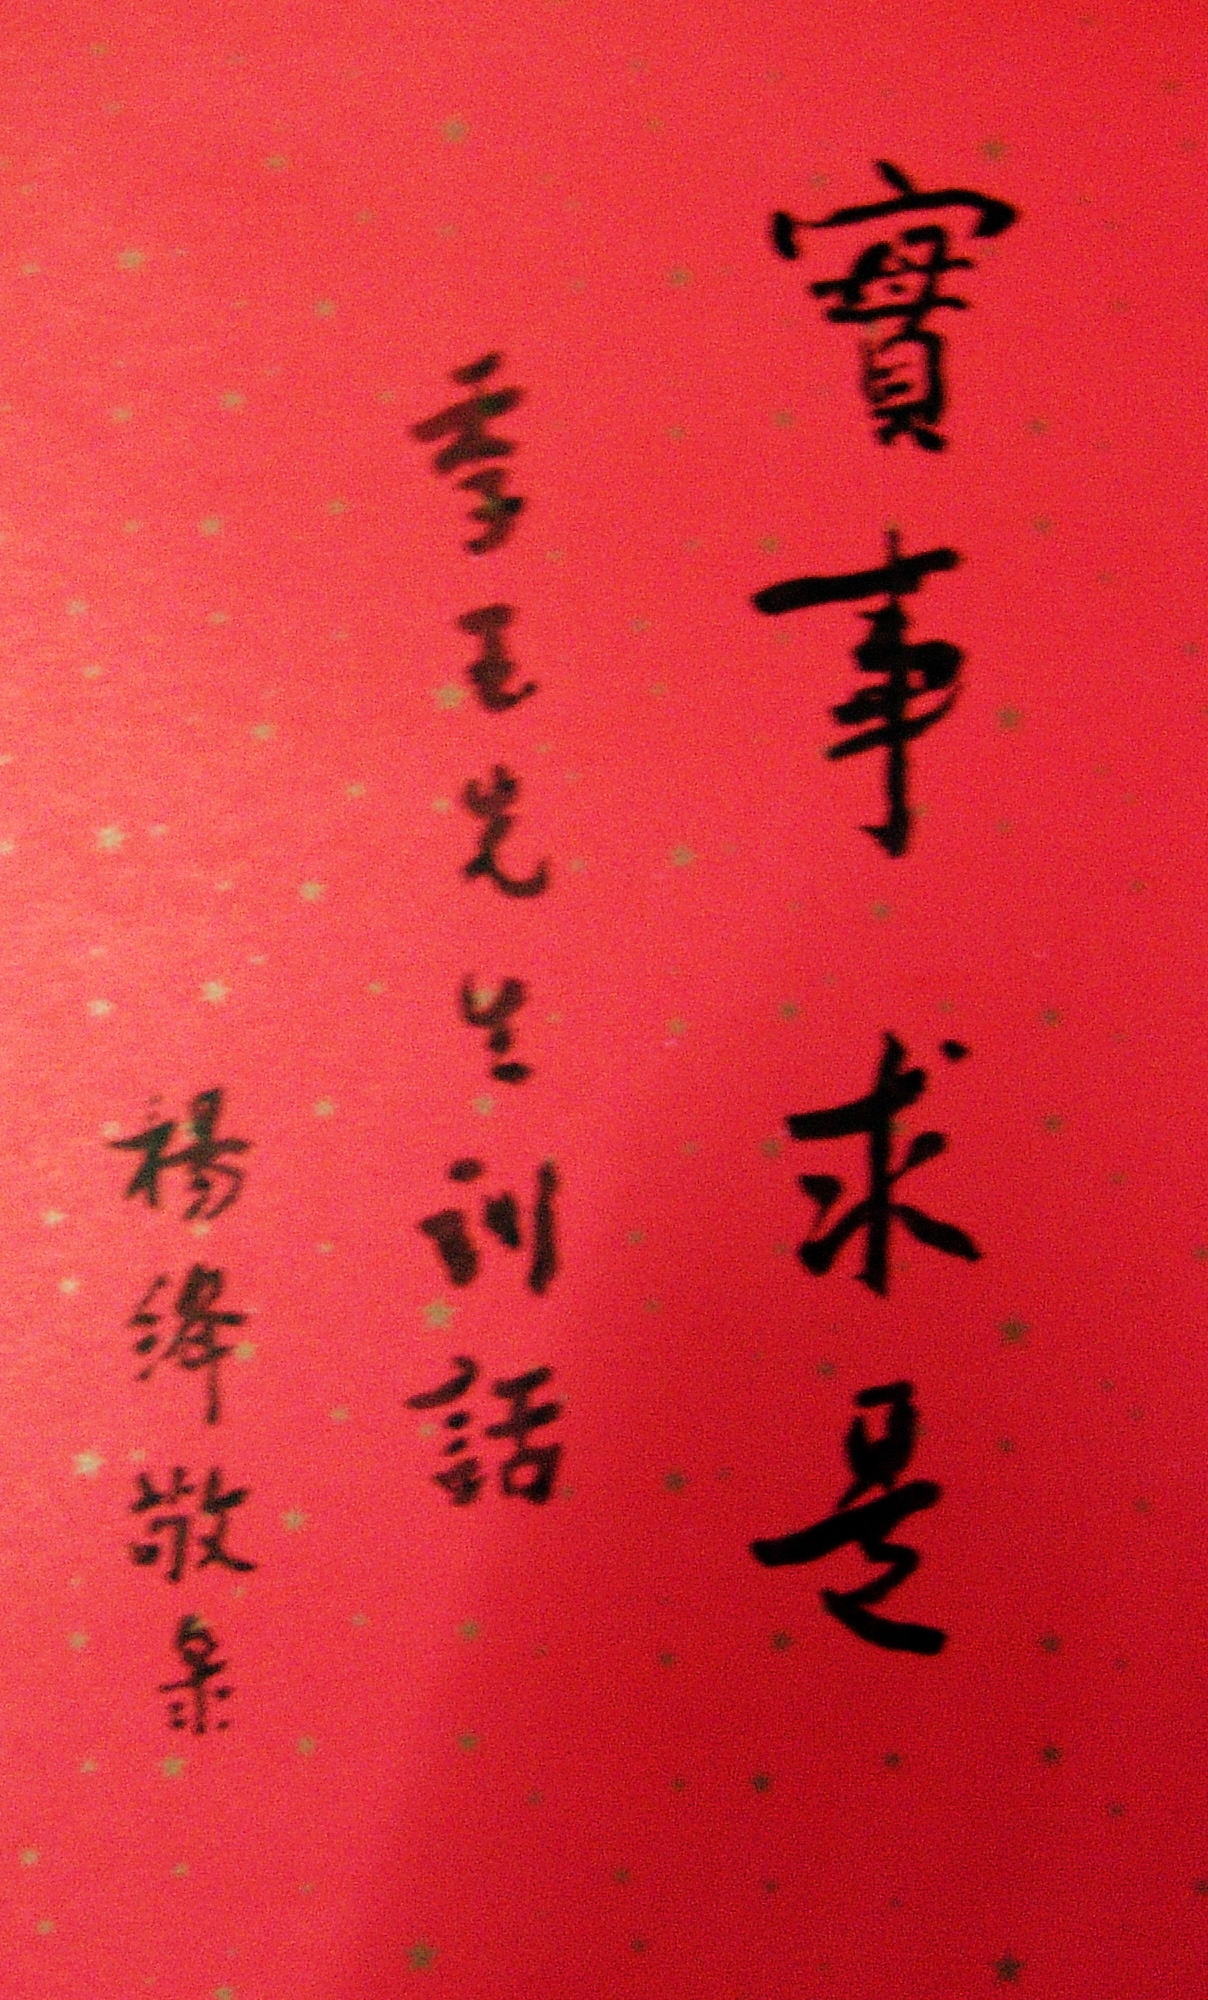 實事求是
季玉先生訓話
楊絳敬录